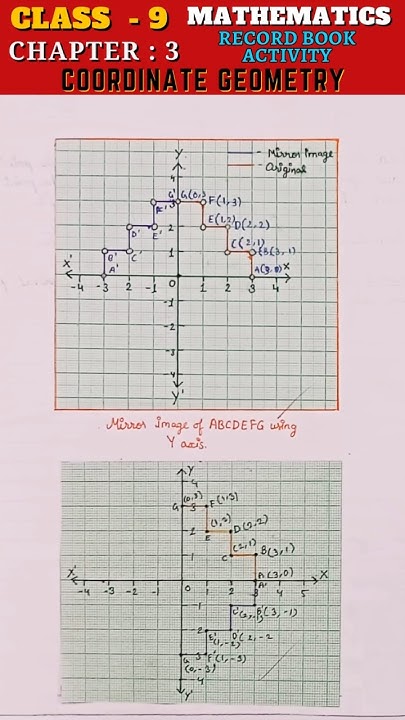 CLASS - 9 MATHEMATICS
CHAPTER : 3 RECORD BOOK ACTIVITY
COORDINATE GEOMETRY
Y
- Mirror Image
- Original
4
G' 3 G(0,3 F(1,3)
F'
D' E' 2 E(1,2) D(2,2)
B' C' 1 C(2,1) B(3,1)
X' A' A(3,0) X
-4 -3 -2 -1 0 1 2 3 4
-1
-2
-3
-4
Y'
Mirror Image of ABCDEFG using
Y axis.
Y
4
G (0,3) 3 F(1,3)
2 (1,2) E D(2,2)
1 (2,1) C B(3,1)
X' A(3,0) X
-4 -3 -2 -1 0 1 2 3 A' 4 5
-1 C'(2, B'(3,-1)
-2 E'(1,-2) D'(2,-2
G -3 F'(1,-3)
(0,-3)
-4
Y'